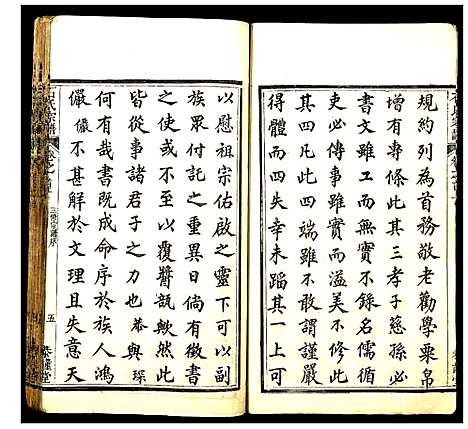 規約列為首務敬老勸學粟帛
增有專條此其三孝子慈孫必
書文雖工而無實不錄名儒循
吏必傳事雖實而溢美不修此
其四凡此四端雖不敢謂謹嚴
得體而四失幸未蹈其一上可
以慰祖宗佑啟之靈下可以副
族眾付託之重異日倘有徵書
之使或不至以覆醬瓿歟然此
皆從事諸君子之力也恭與琛
何有哉書既成命序於族人鴻
儼儼不甚解於文理且失意天
氏宗譜
三修宗譜序
五